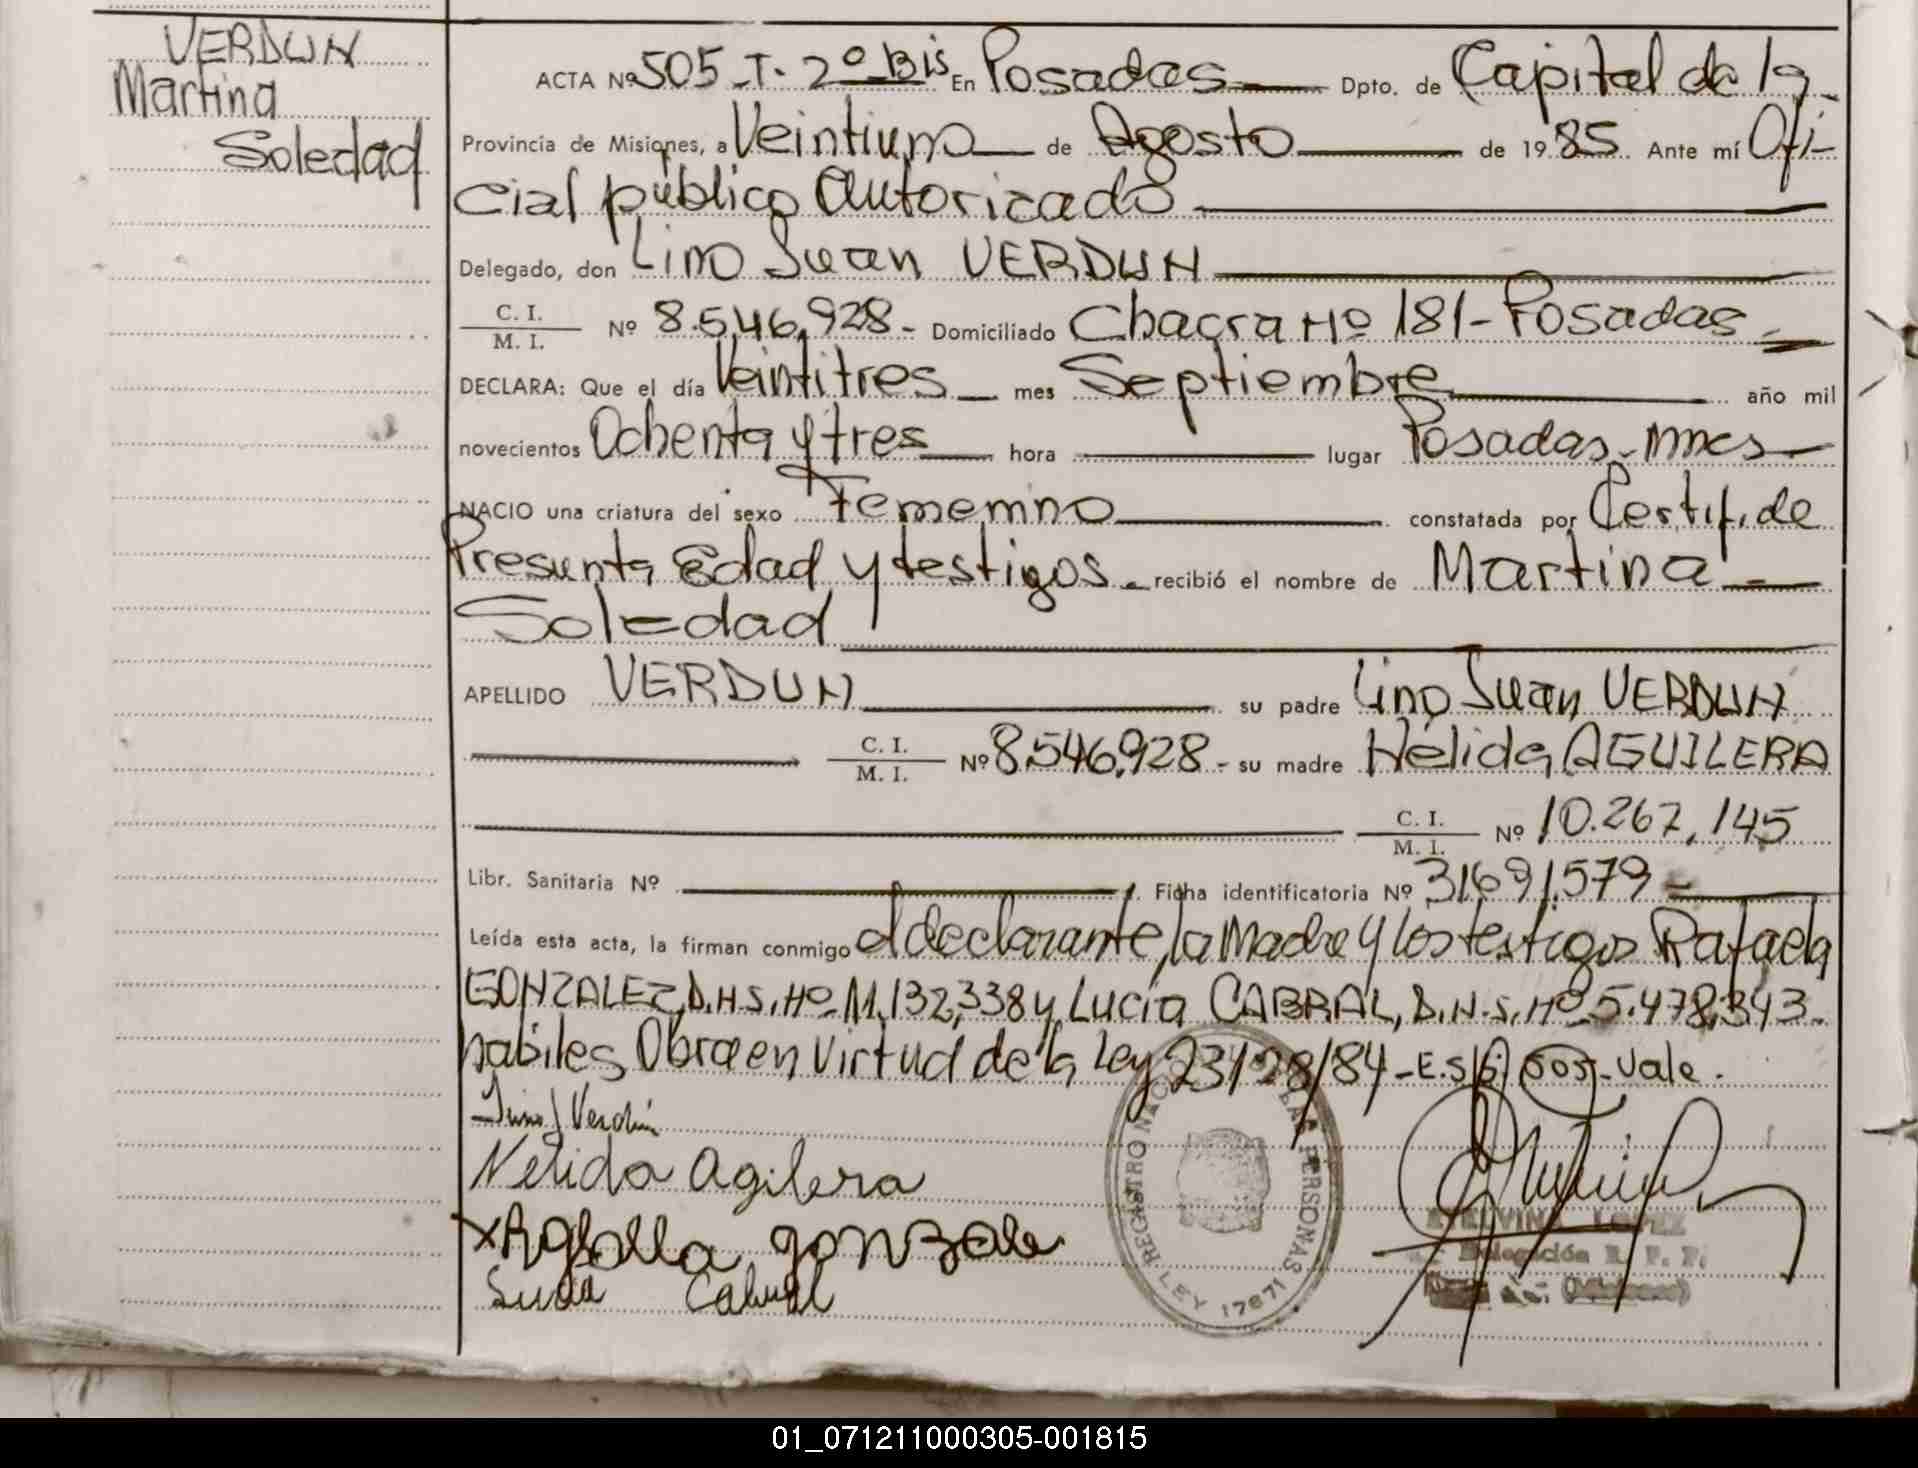 VERDUN
Martina
Soledad
ACTA Nº 505-T. 2º Bis En Posadas Dpto. de Capital de la
Provincia de Misiones, a Veintiuno de Agosto de 1985. Ante mí Ofi-
cial público Autorizado
Delegado, don Lino Juan VERDUN
C. I.
M. I. Nº 8.546.928.- Domiciliado Chacra Nº 181-Posadas
DECLARA: Que el día Veintitres mes Septiembre año mil
novecientos Ochenta y tres hora lugar Posadas. Mnes
NACIO una criatura del sexo Femenino constatada por Certif. de
Presunta Edad y testigos.- recibió el nombre de Martina
Soledad
APELLIDO VERDUN su padre Lino Juan VERDUN
C. I.
M. I. Nº 8.546.928.- su madre Hélida AGUILERA
C. I.
M. I. Nº 10.267.145
Libr. Sanitaria Nº Ficha identificatoria Nº 31691.579
Leída esta acta, la firman conmigo el declarante, la Madre y los testigos Rafaela
GONZALEZ, D.N.I. Nº 11.132.338 y Lucia CABRAL, D.N.I. Nº 5.478.343.
habiles Obra en Virtud de la Ley 23128/84-E.S/R 505-Vale.
Lino J Verdún
Nelida Agilera
x Rafaela gonzale
Lucia Cabral
REGISTRO NACIONAL DE LAS PERSONAS
LEY 17671
LOPEZ
Delegación R. P. P.
01_071211000305-001815